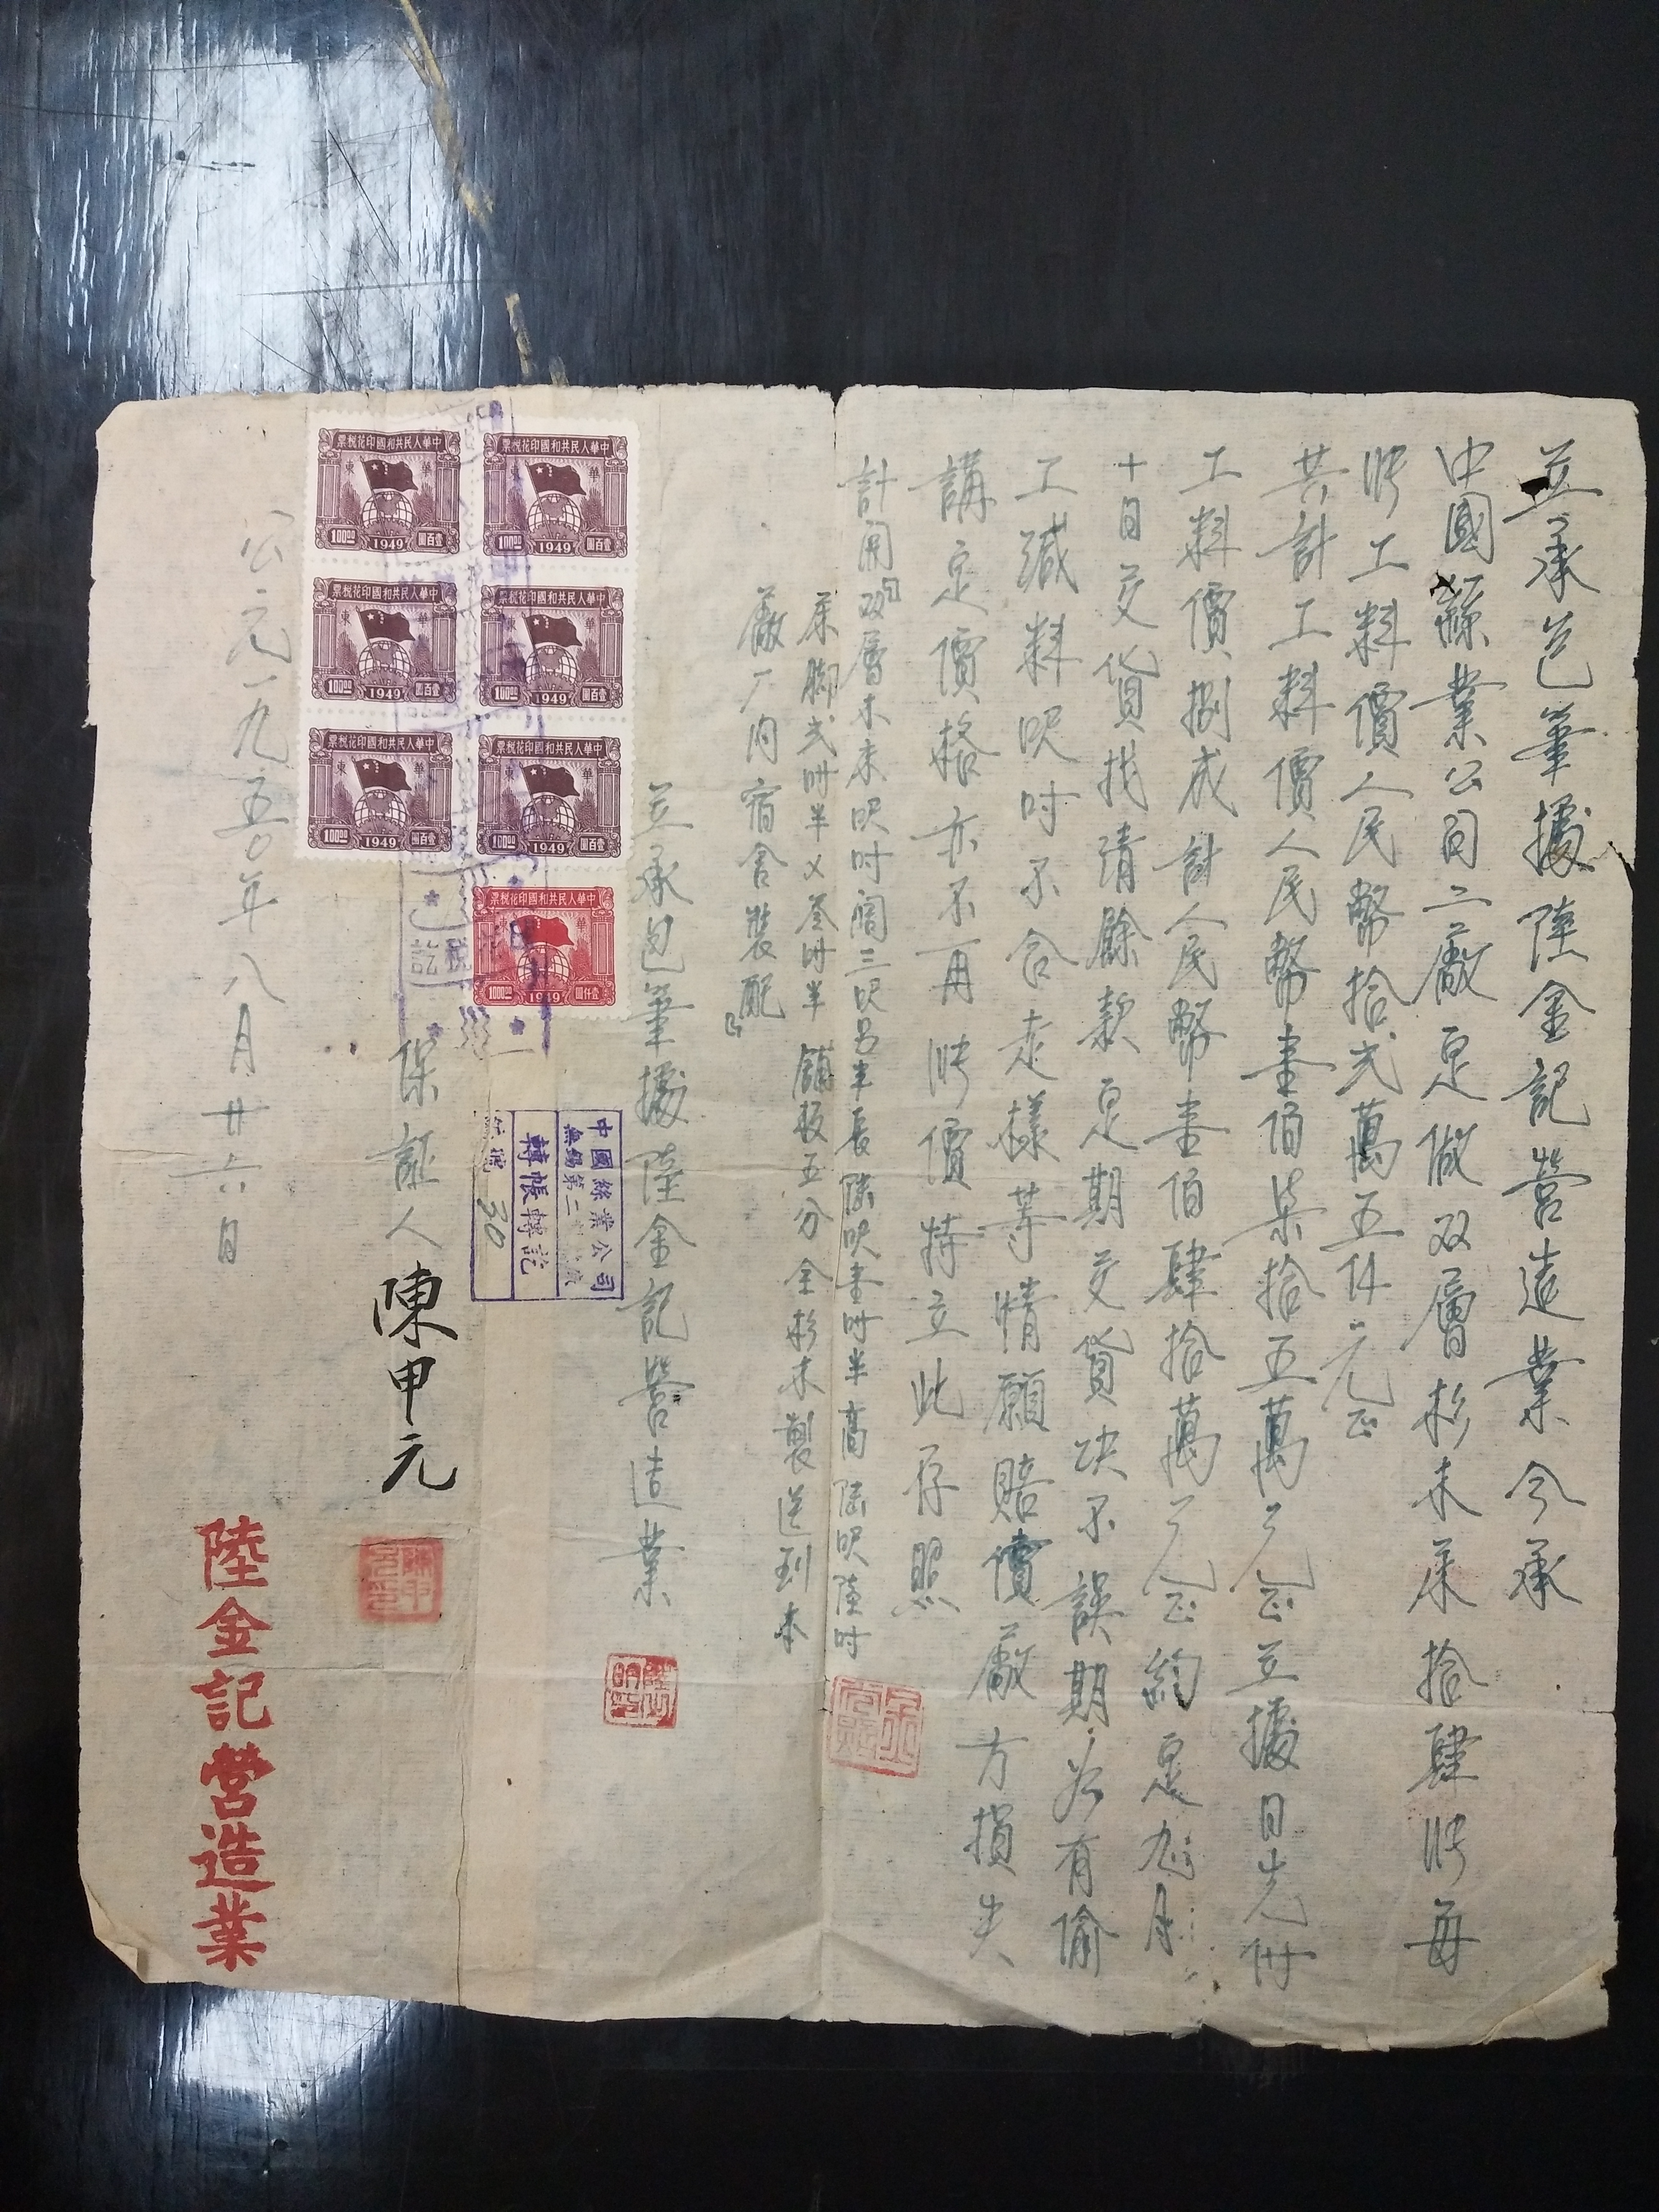 立承包筆據陸金記營造業今承
中國絲業公司二廠定做双層杉木床拾肆只每
只工料價人民幣拾弍萬五仟元正
共計工料價人民幣壹佰柒拾五萬元正立據日先付
工料價捌成計人民幣壹佰肆拾萬元正約定九月
十日交貨找清餘款定期交貨決不誤期若有偷
工減料呎吋不合走樣等情願賠償廠方損失
講定價格亦不再 價特立此存照
計開双層木床呎吋濶三呎 半長陸呎壹吋半高陸呎陸吋
床脚弍吋半乂叁吋半 舖板五分 全杉木製送到本
廠厂内宿舍裝配
立承包筆據陸金記營造業
中國絲業公司
無錫第二 廠
轉帳轉訖
號 30
保証人 陳甲元
公元一九五〇年八月廿六日
陸金記營造業
中華人民共和國印花稅票
華東
100.00 1949 壹百圓
中華人民共和國印花稅票
華東
100.00 1949 壹百圓
中華人民共和國印花稅票
華東
100.00 1949 壹百圓
中華人民共和國印花稅票
華東
100.00 1949 壹百圓
中華人民共和國印花稅票
華東
100.00 1949 壹百圓
中華人民共和國印花稅票
華東
100.00 1949 壹百圓
中華人民共和國印花稅票
華
1000.00 1949 壹仟圓
稅訖